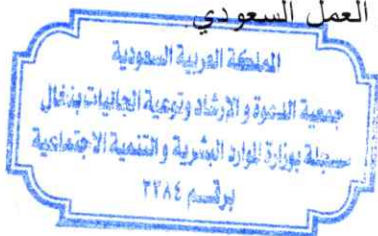 العمل السعودي.
المملكة العربية السعودية
جمعية الدعوة والإرشاد وتوعية الجاليات
مسجلة بوزارة الموارد البشرية و التنمية الاجتماعية
برقم ٣٢٨٤